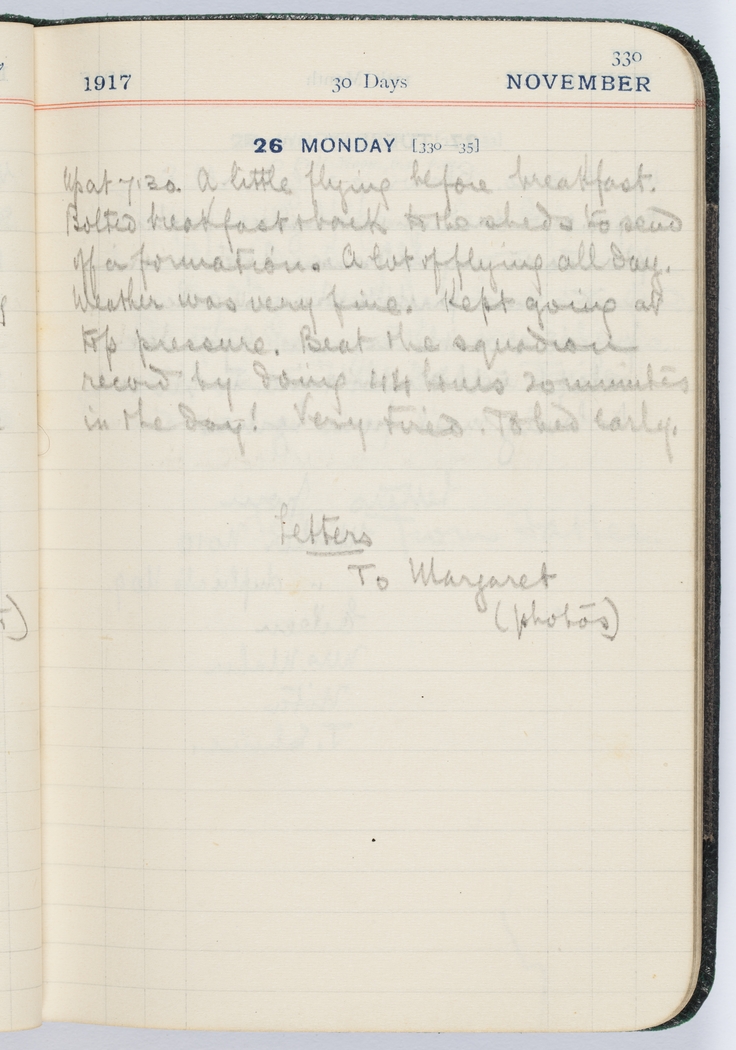 330
1917 30 Days NOVEMBER
26 MONDAY [330 35]
Up at 7.30. A little flying before breakfast.
Bolted breakfast & back to the sheds to send
off a formation. A lot of flying all day.
Weather was very fine. Kept going at
top pressure. Beat the squadron
record by doing 44 hours 20 minutes
in the day! Very tired. To bed early.
Letters
To Margaret
(photos)